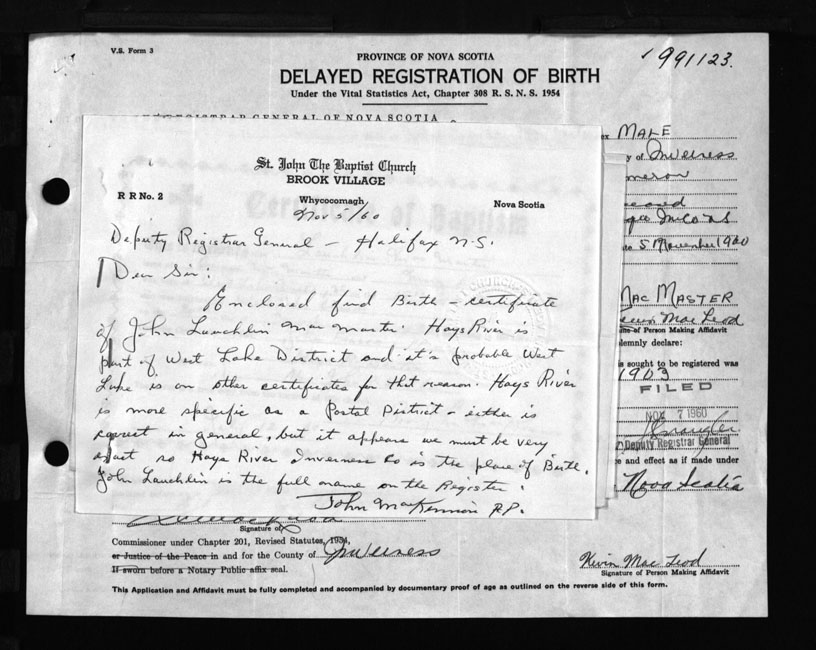 V.S. Form 3
PROVINCE OF NOVA SCOTIA
1991123.
DELAYED REGISTRATION OF BIRTH
Under the Vital Statistics Act, Chapter 308 R. S. N. S. 1954
REGISTRAR GENERAL OF NOVA SCOTIA
St. John The Baptist Church
BROOK VILLAGE
R R No. 2
Whycocomagh, Nova Scotia
Nov 5/60
Deputy Registrar General - Halifax N.S.
Dear Sir:
Enclosed find Birth - certificate
of John Lauchlin MacMaster. Hays River is
part of West Lake District and it's probable West
Lake is on other certificates for that reason. Hays River
is more specific as a Postal District - either is
correct in general, but it appears we must be very
exact so Hays River Inverness Co is the place of Birth.
John Lauchlin is the full name on the Register.
John MacKinnon P.P.
Certificate of Baptism
MALE
y of Inverness
5 November 1960
MAC MASTER
Kevin Mac Leod
of Person Making Affidavit
lemnly declare:
is sought to be registered was
1903
FILED
NOV 7 1960
Deputy Registrar General
ce and effect as if made under
Nova Scotia
Signature of
Commissioner under Chapter 201, Revised Statutes, 1954,
or Justice of the Peace in and for the County of Inverness
If sworn before a Notary Public affix seal.
Kevin Mac Leod
Signature of Person Making Affidavit
This Application and Affidavit must be fully completed and accompanied by documentary proof of age as outlined on the reverse side of this form.